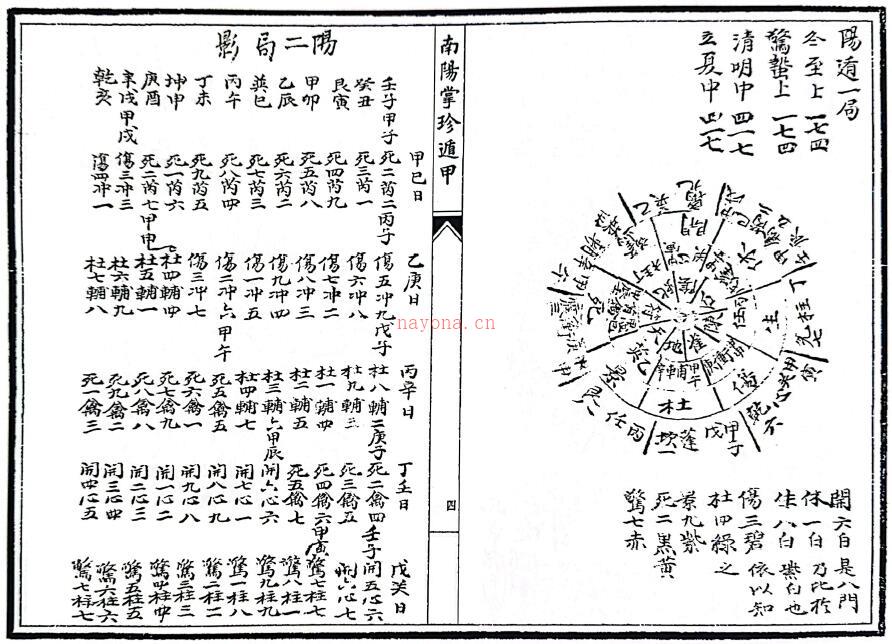 陽遁一局
冬至上一七四
驚蟄上一七四
清明中四一七
立夏中四一七
休
生
傷
杜
景
死
開
地
雀
陳
丁
柱
甲子
戊
蓬
坎一
丙
任
艮八
開六白是八門
休一白乃比於
生八白紫白也
傷三碧依以知
杜四綠之
景九紫
死二黑黃
驚七赤
南陽掌珍遁甲
四
陽二局影
甲巳日 乙庚日 丙辛日 丁壬日 戊癸日
壬子甲子 死二芮二丙子 傷五冲九戊子 杜八輔二庚子 死二禽四壬子 開五心六
癸丑 死三芮一 傷六冲八 杜九輔三 死三禽五 開六心七
艮寅 死四芮九 傷七冲二 杜一輔四 死四禽六甲寅 驚七柱七
甲卯 死五芮八 傷八冲三 杜二輔五 死五禽七 驚八柱一
乙辰 死六芮二 傷九冲四 杜三輔六甲辰 開六心六 驚九柱九
巽巳 死七芮三 傷一冲五 杜四輔七 開七心一 驚一柱八
丙午 死八芮四 傷二冲六甲午 死五禽五 開八心九 驚二柱二
丁未 死九芮五 傷三冲七 死六禽一 開九心八 驚三柱三
坤申 死一芮六 杜四輔四 死七禽九 開一心二 驚四柱四
庚酉 死二芮七甲申 杜五輔一 死八禽八 開二心三 驚五柱五
辛戌甲戌 傷三冲三 杜六輔九 死九禽二 開三心四 驚六柱六
乾亥 傷四冲一 杜七輔八 死一禽三 開四心五 驚七柱七
nayona.cn